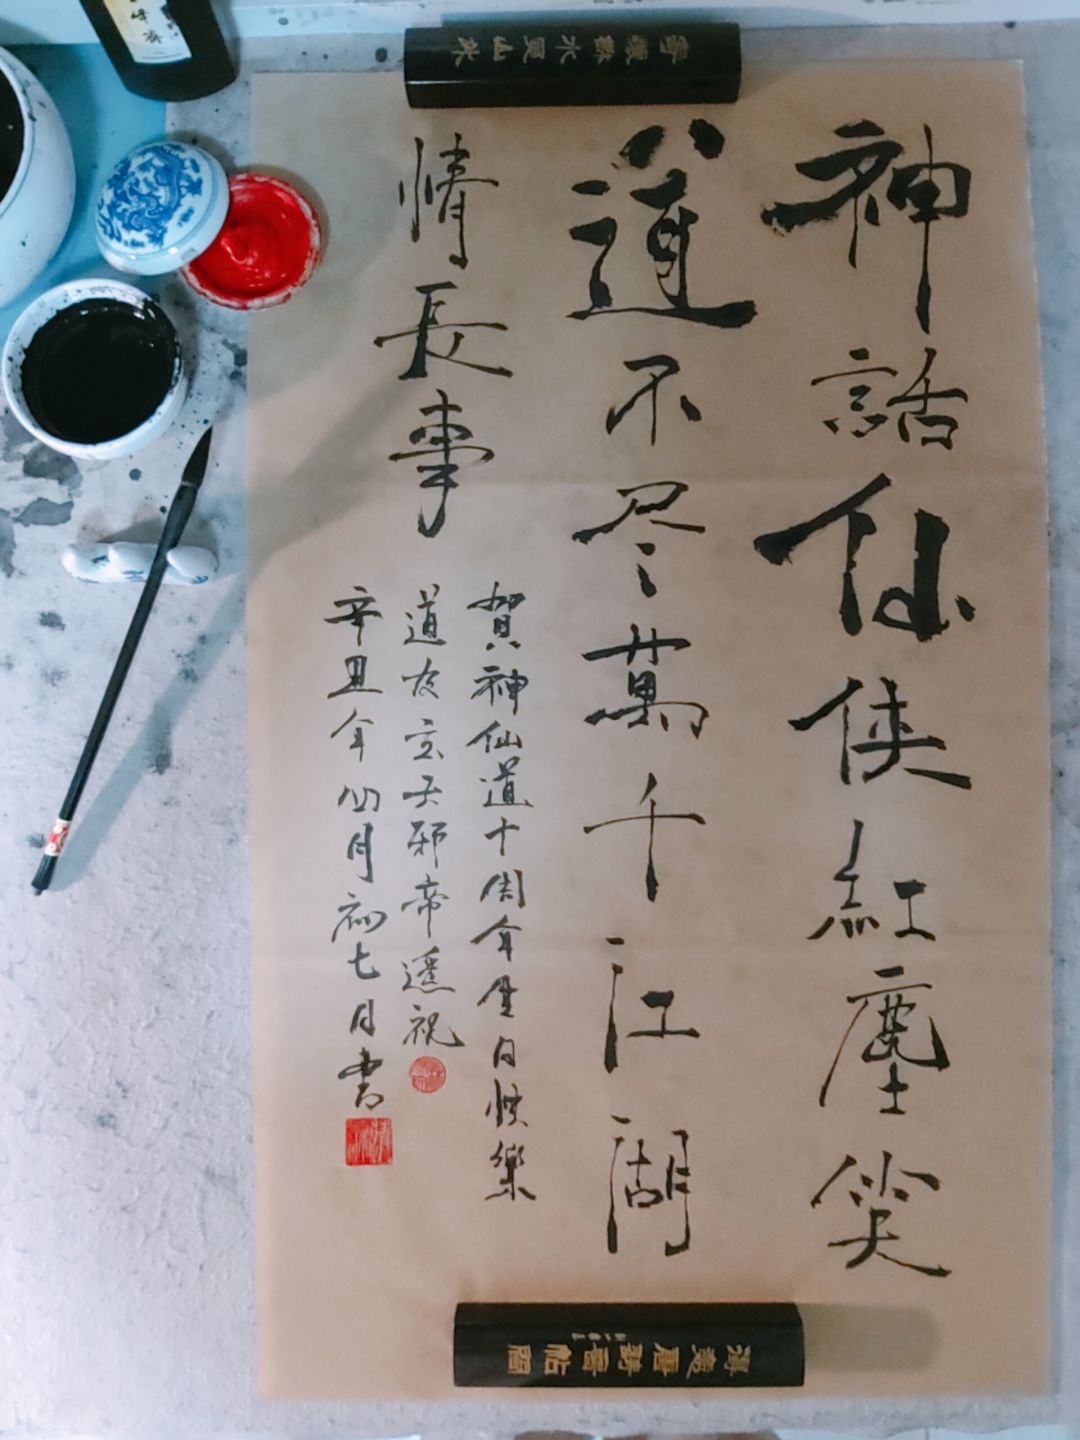 神話仙侠紅塵笑
道不尽萬千江湖
情長事
賀神仙道十周年生日快樂
道友玄天邪帝遥祝
辛丑年四月初七日書